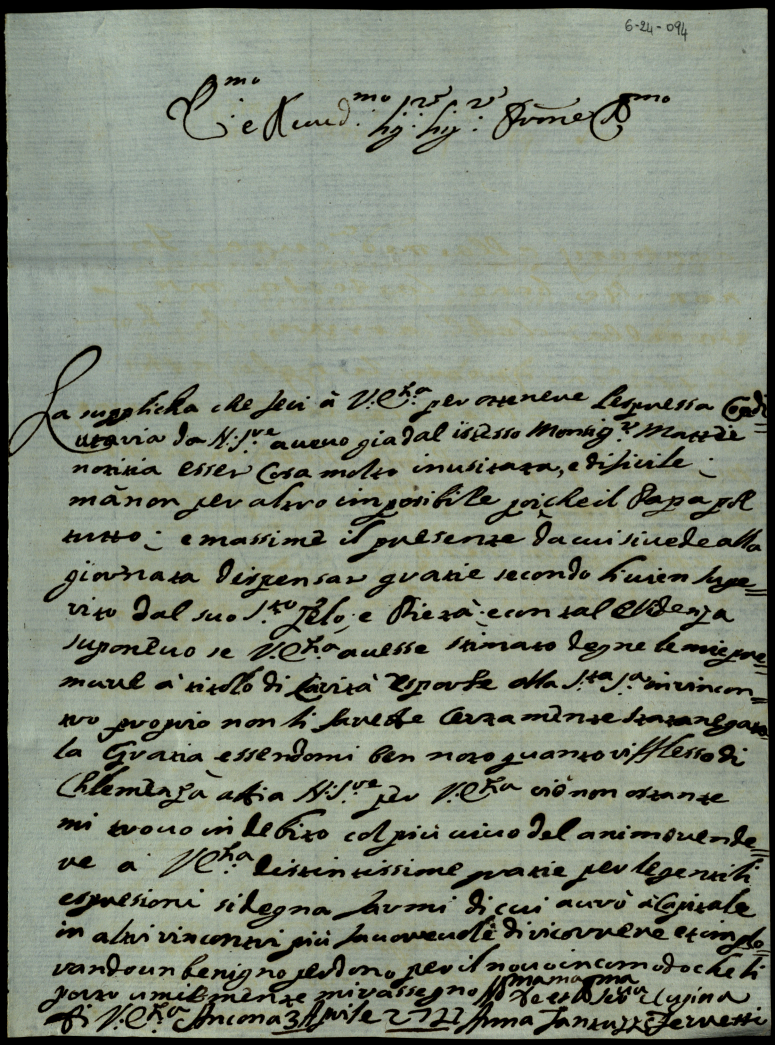 6-24-094
Ill.mo e Reuerd.mo Sig.r Sig.r Prone Col.mo
La supplicha che feci à V.E.za per ottenere l'espressa Coadi=
utaria da N.Sig.re aueuo gia dal istesso Monsig.r Mattei
notitia esser Cosa molto inusitata, e dificile;
mà non per altro imposibile poiche il Papa può
tutto; e massime il presente da cui si uede alla
giornata dispensar gratie secondo li uien suge=
rito dal suo S.to Zelo, e Pietà; e con tal Euidenza
suponeuo se V.E.za auesse stimato degne le mie pre=
mure à titolo di Carità esporle alla S.tà S.a in rincon=
tro proprio non li sarebbe Certamente stata negata
la Gratia essendomi ben noto quanto rifflesso di
Chlemenza abbia N.Sig.re per V.E.za ciò non ostante
mi trouo in debito col più uiuo del animo rende=
re à V.E.za distintissime gratie per le gentili
espresioni si degna farmi di cui aurò à Capitale
in altri rincontri più fauoreuole di ricorrere et implo=
rando un benigno perdono per il nouo incomodo che li
porto umilmente mi rassegno
di V.E.za Ancona 3 Aprile 1727
Vma ma ma
Deu Ser Cugina
Anna Ferretti